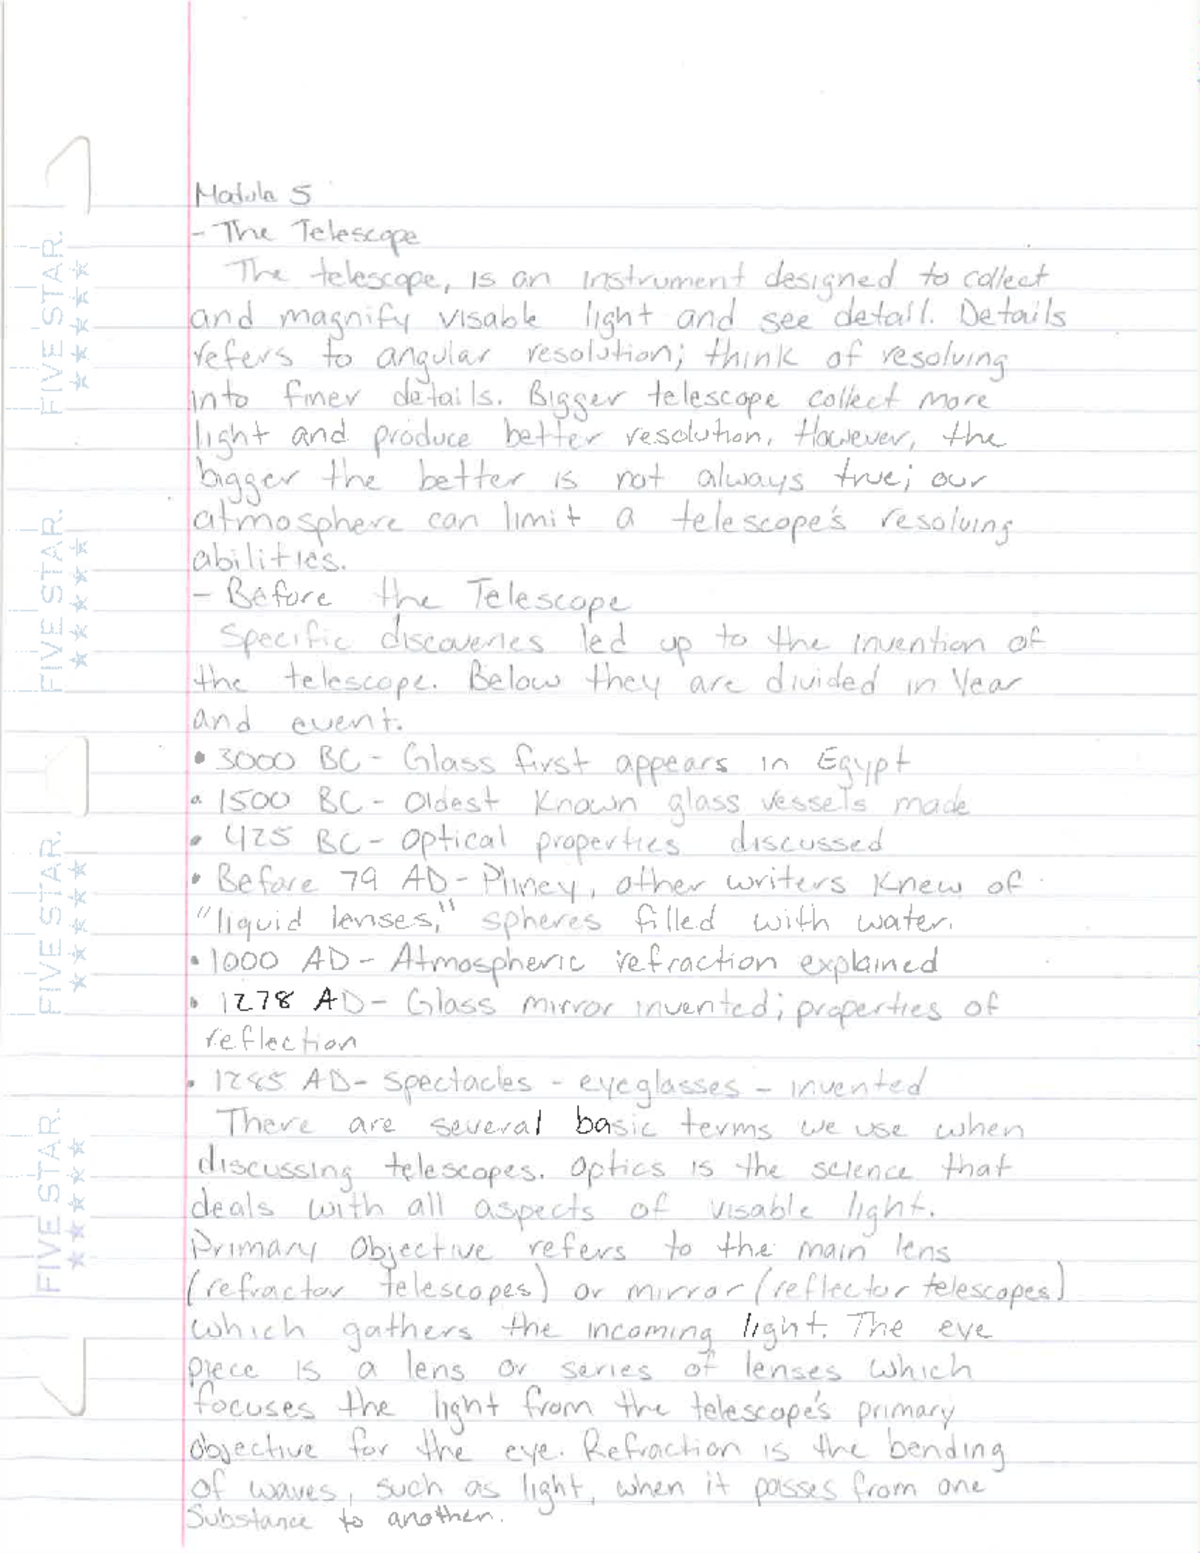 Module 5
- The Telescope
The telescope, is an instrument designed to collect
and magnify visable light and see detail. Details
refers to angular resolution; think of resolving
into finer details. Bigger telescope collect more
light and produce better resolution. However, the
bigger the better is not always true; our
atmosphere can limit a telescope's resolving
abilities.
- Before the Telescope
Specific discoveries led up to the invention of
the telescope. Below they are divided in Year
and event.
• 3000 BC - Glass first appears in Egypt
• 1500 BC - Oldest Known glass vessels made
• 425 BC - Optical properties discussed
• Before 79 AD - Pliney, other writers Knew of
"liquid lenses," spheres filled with water.
• 1000 AD - Atmospheric refraction explained
• 1278 AD - Glass mirror invented; properties of
reflection
• 1285 AD - Spectacles - eyeglasses - invented
There are several basic terms we use when
discussing telescopes. Optics is the science that
deals with all aspects of visable light.
Primary Objective refers to the main lens
(refractor telescopes) or mirror (reflector telescopes)
which gathers the incoming light. The eye
piece is a lens or series of lenses which
focuses the light from the telescope's primary
objective for the eye. Refraction is the bending
of waves, such as light, when it passes from one
Substance to another.
FIVE STAR.
FIVE STAR.
FIVE STAR.
FIVE STAR.